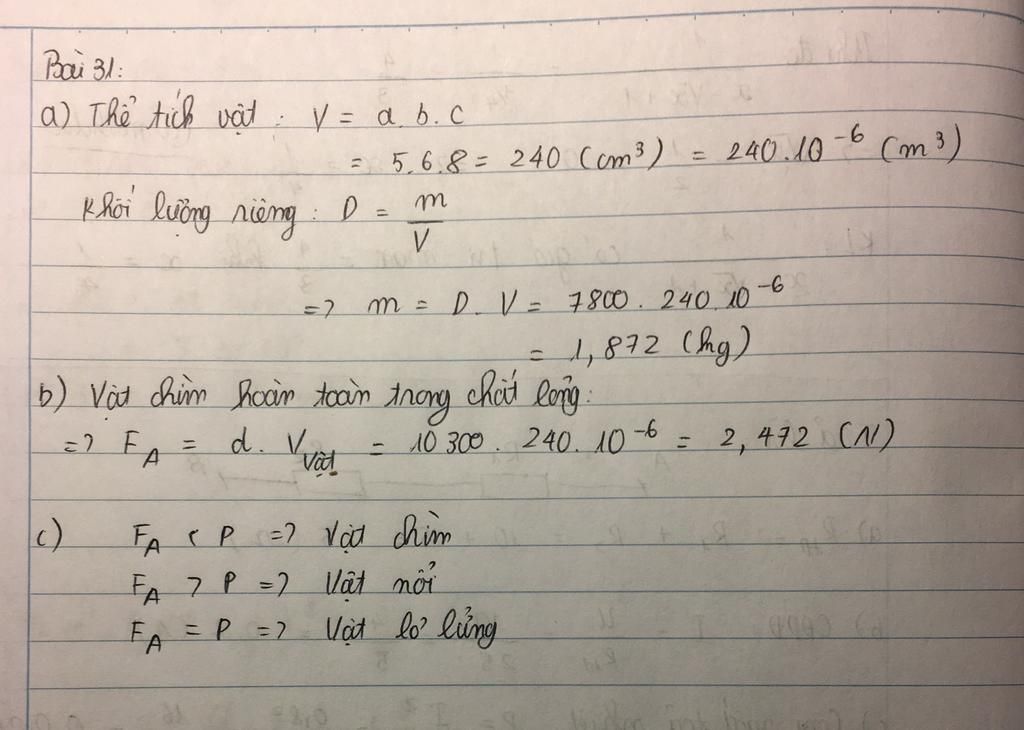 Bài 31:
a) Thể tích vật : V = a. b. c
= 5.6.8 = 240 (cm³) = 240.10⁻⁶ (m³)
Khối lượng riêng : D = m/V
=> m = D. V = 7800. 240.10⁻⁶
= 1,872 (kg)
b) Vật chìm hoàn toàn trong chất lỏng:
=> F_A = d. V_vật = 10 300. 240. 10⁻⁶ = 2,472 (N)
c) F_A < P => Vật chìm
F_A > P => Vật nổi
F_A = P => Vật lơ lửng